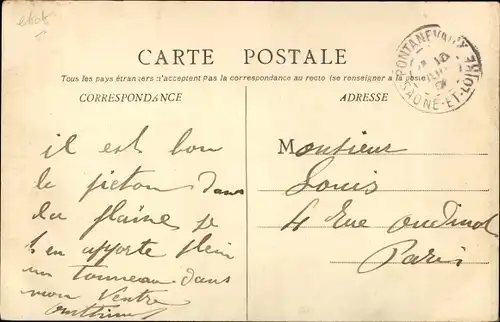 CARTE POSTALE
Tous les pays étrangers n'acceptent pas la correspondance au recto (se renseigner à la poste)
CORRESPONDANCE
ADRESSE
PONTANEVAUX
SAONE-ET-LOIRE
il est bon
le picton dans
la plaine je
t'en apporte plein
un tonneau dans
mon ventre
Monsieur
Louis
4 Rue Oudinot
Paris